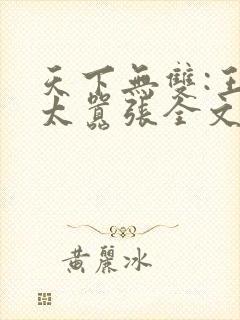 天下無雙:王
太囂張全文
黃麗冰